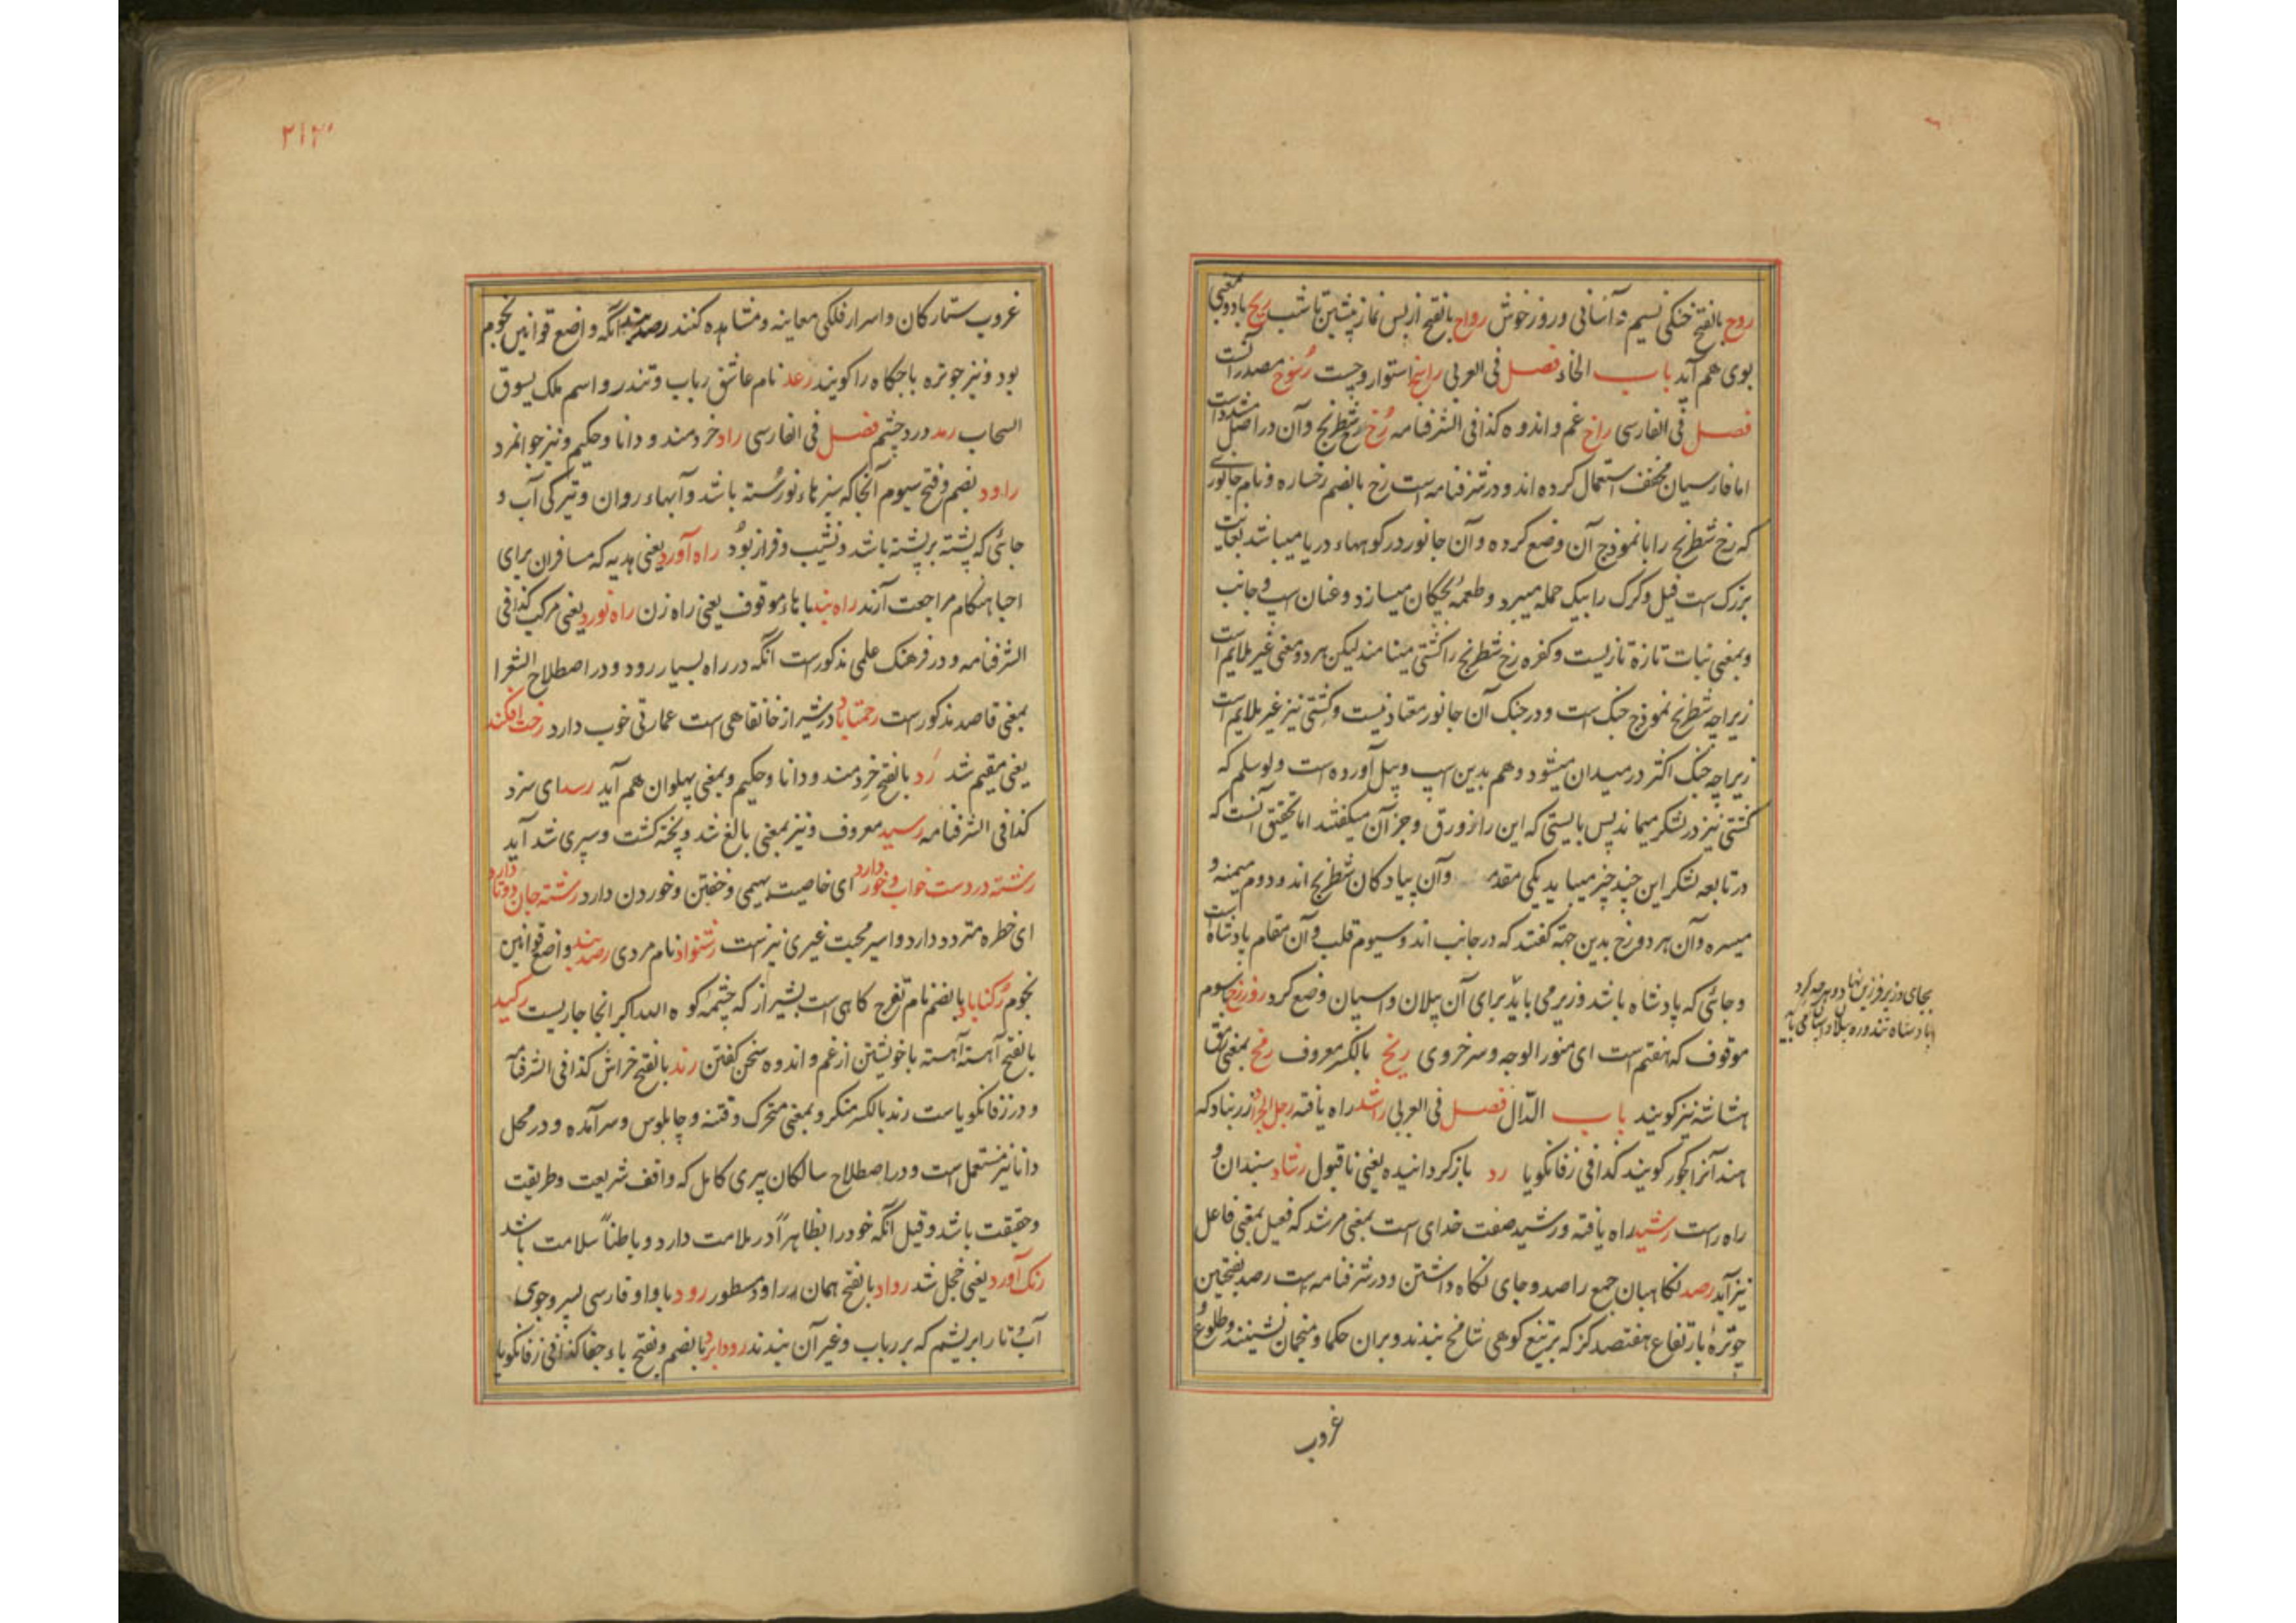 روح بالفتح خنکی نسیم و آسانی و روز خوش رواح بالفتح از پس نماز پیشین تا شب ریح باد و بمعنی
بوی هم آید باب الخاء فصل فی العربی راسخ استوار و چست رسوخ مصدر آنست
فصل فی الفارسی راخ غم و اندوه کذا فی الشرفنامه رخ رخ شطرنج و آن در اصل مشدد است
اما فارسیان مخفف استعمال کرده اند و در شرفنامه است رخ بالضم رخساره و نام جانوری
که رخ شطرنج را بانموذج آن وضع کرده و آن جانور در کوهها دریا میباشد بغایت
بزرک است فیل و کرک را بیک حمله میبرد و طعمه بچکان میسازد و عنان اسپ و جانب
و بمعنی نبات تازه تازیست و کفره رخ شطرنج را کشتی مینامند لیکن هر دو معنی غیر ملایم است
زیراچه شطرنج نموذج جنک است و در جنک آن جانور معتاد نیست و کشتی نیز غیر ملایم است
زیراچه جنک اکثر در میدان میشود و هم بدین اسپ و پیل آورده است ولو سلم که
کشتی نیز در لشکر میماند پس بایستی که این را زورق و جز آن میکفتند اما تحقیق آنست که
در تابعه لشکر این چند چیز میباید یکی مقدمه و آن پیادکان شطرنج اند و دوم میمنه و
میسره و آن هر دو رخ بدین جهة کفتند که در جانب اند و سیوم قلب و آن مقام پادشاه است
و جائی که پادشاه باشد وزیر می باید برای آن پیلان و اسپان وضع کرد روز رخ سیوم
موقوف که هفتم است ای منور الوجه و سرخروی ریخ بالکسر معروف رمخ بمعنی
هشاشه نیز کویند باب الدال فصل فی العربی راشد راه یافته رجل الجراد زرنباد که
هند آنرا کچور کویند کذا فی زفانکویا رد باز کردانیده یعنی نا قبول رشاد سپندان و
راه راست رشید راه یافته و رشید صفت خدای است بمعنی مرشد که فعیل بمعنی فاعل
نیز آید رصد نکاهبان جمع راصد و جای نکاه داشتن و در شرفنامه است رصد بفتحتین
چوتره بارتفاع هفتصد کز که بر تیغ کوهی شامخ بندند و بران حکما و منجمان نشینند و طلوع و
غروب
بجای وزیر فرزین نهاد و هرچه کرد
غروب ستارکان و اسرار فلکی معاینه و مشاهده کنند رصدبند آنکه واضع قوانین نجوم
بود و نیز چوتره باجکاه را کویند رعد نام عاشق رباب و تندر و اسم ملک یسوق
السحاب رمد درد چشم فصل فی الفارسی راد خردمند و دانا و حکیم و نیز جوانمرد
راود بضم و فتح سیوم آنجا که سبزهاء نورسته باشد و آبهاء روان و تیرکی آب و
جائی که پشته بر پشته باشد و نشیب و فراز بود راه آورد یعنی هدیه که مسافران برای
احبا هنکام مراجعت آرند راه بند با هاء موقوف یعنی راه زن راه نورد یعنی مرکب کذا فی
الشرفنامه و در فرهنک علمی مذکور است آنکه در راه بسیار رود و در اصطلاح الشعرا
بمعنی قاصد مذکور است رحمتاباد در شیراز خانقاهی است عمارتی خوب دارد رخت افکند
یعنی مقیم شد رد بالفتح خردمند و دانا و حکیم و بمعنی پهلوان هم آید رسد ای سزد
کذا فی الشرفنامه رسید معروف و نیز بمعنی بالغ شد و پخته کشت و سپری شد آید
رشته در دست خواب و خور دارد ای خاصیت بهیمی و خفتن و خوردن دارد رشته جان دوتا دارد
ای خطره متردد دارد و اسیر محبت غیری نیز است رشنواد نام مردی رصدبند واضع قوانین
نجوم رکناباد بالضم نام تفرج کاهی است بشیراز که چشمه کوه الله اکبر انجا جاریست رکید
بالفتح آهسته آهسته با خویشتن از غم و اندوه سخن کفتن رند بالفتح خراش کذا فی الشرفنامه
و در زفانکویا است رند بالکسر منکر و بمعنی متحرک و فتنه و چابلوس و سرآمده و در محل
دانا نیز مستعمل است و در اصطلاح سالکان پیری کامل که واقف شریعت و طریقت
و حقیقت باشد و قیل آنکه خود را بظاهر آ در ملامت دارد و باطناً سلامت باشد
رنک آورد یعنی خجل شد رواد بالفتح همان راود مسطور رود با واو فارسی پسر و جوی
آب و تار ابریشم که بر رباب و غیر آن بندند رودابرد بالضم و بفتح باء جفا کذا فی زفانکویا